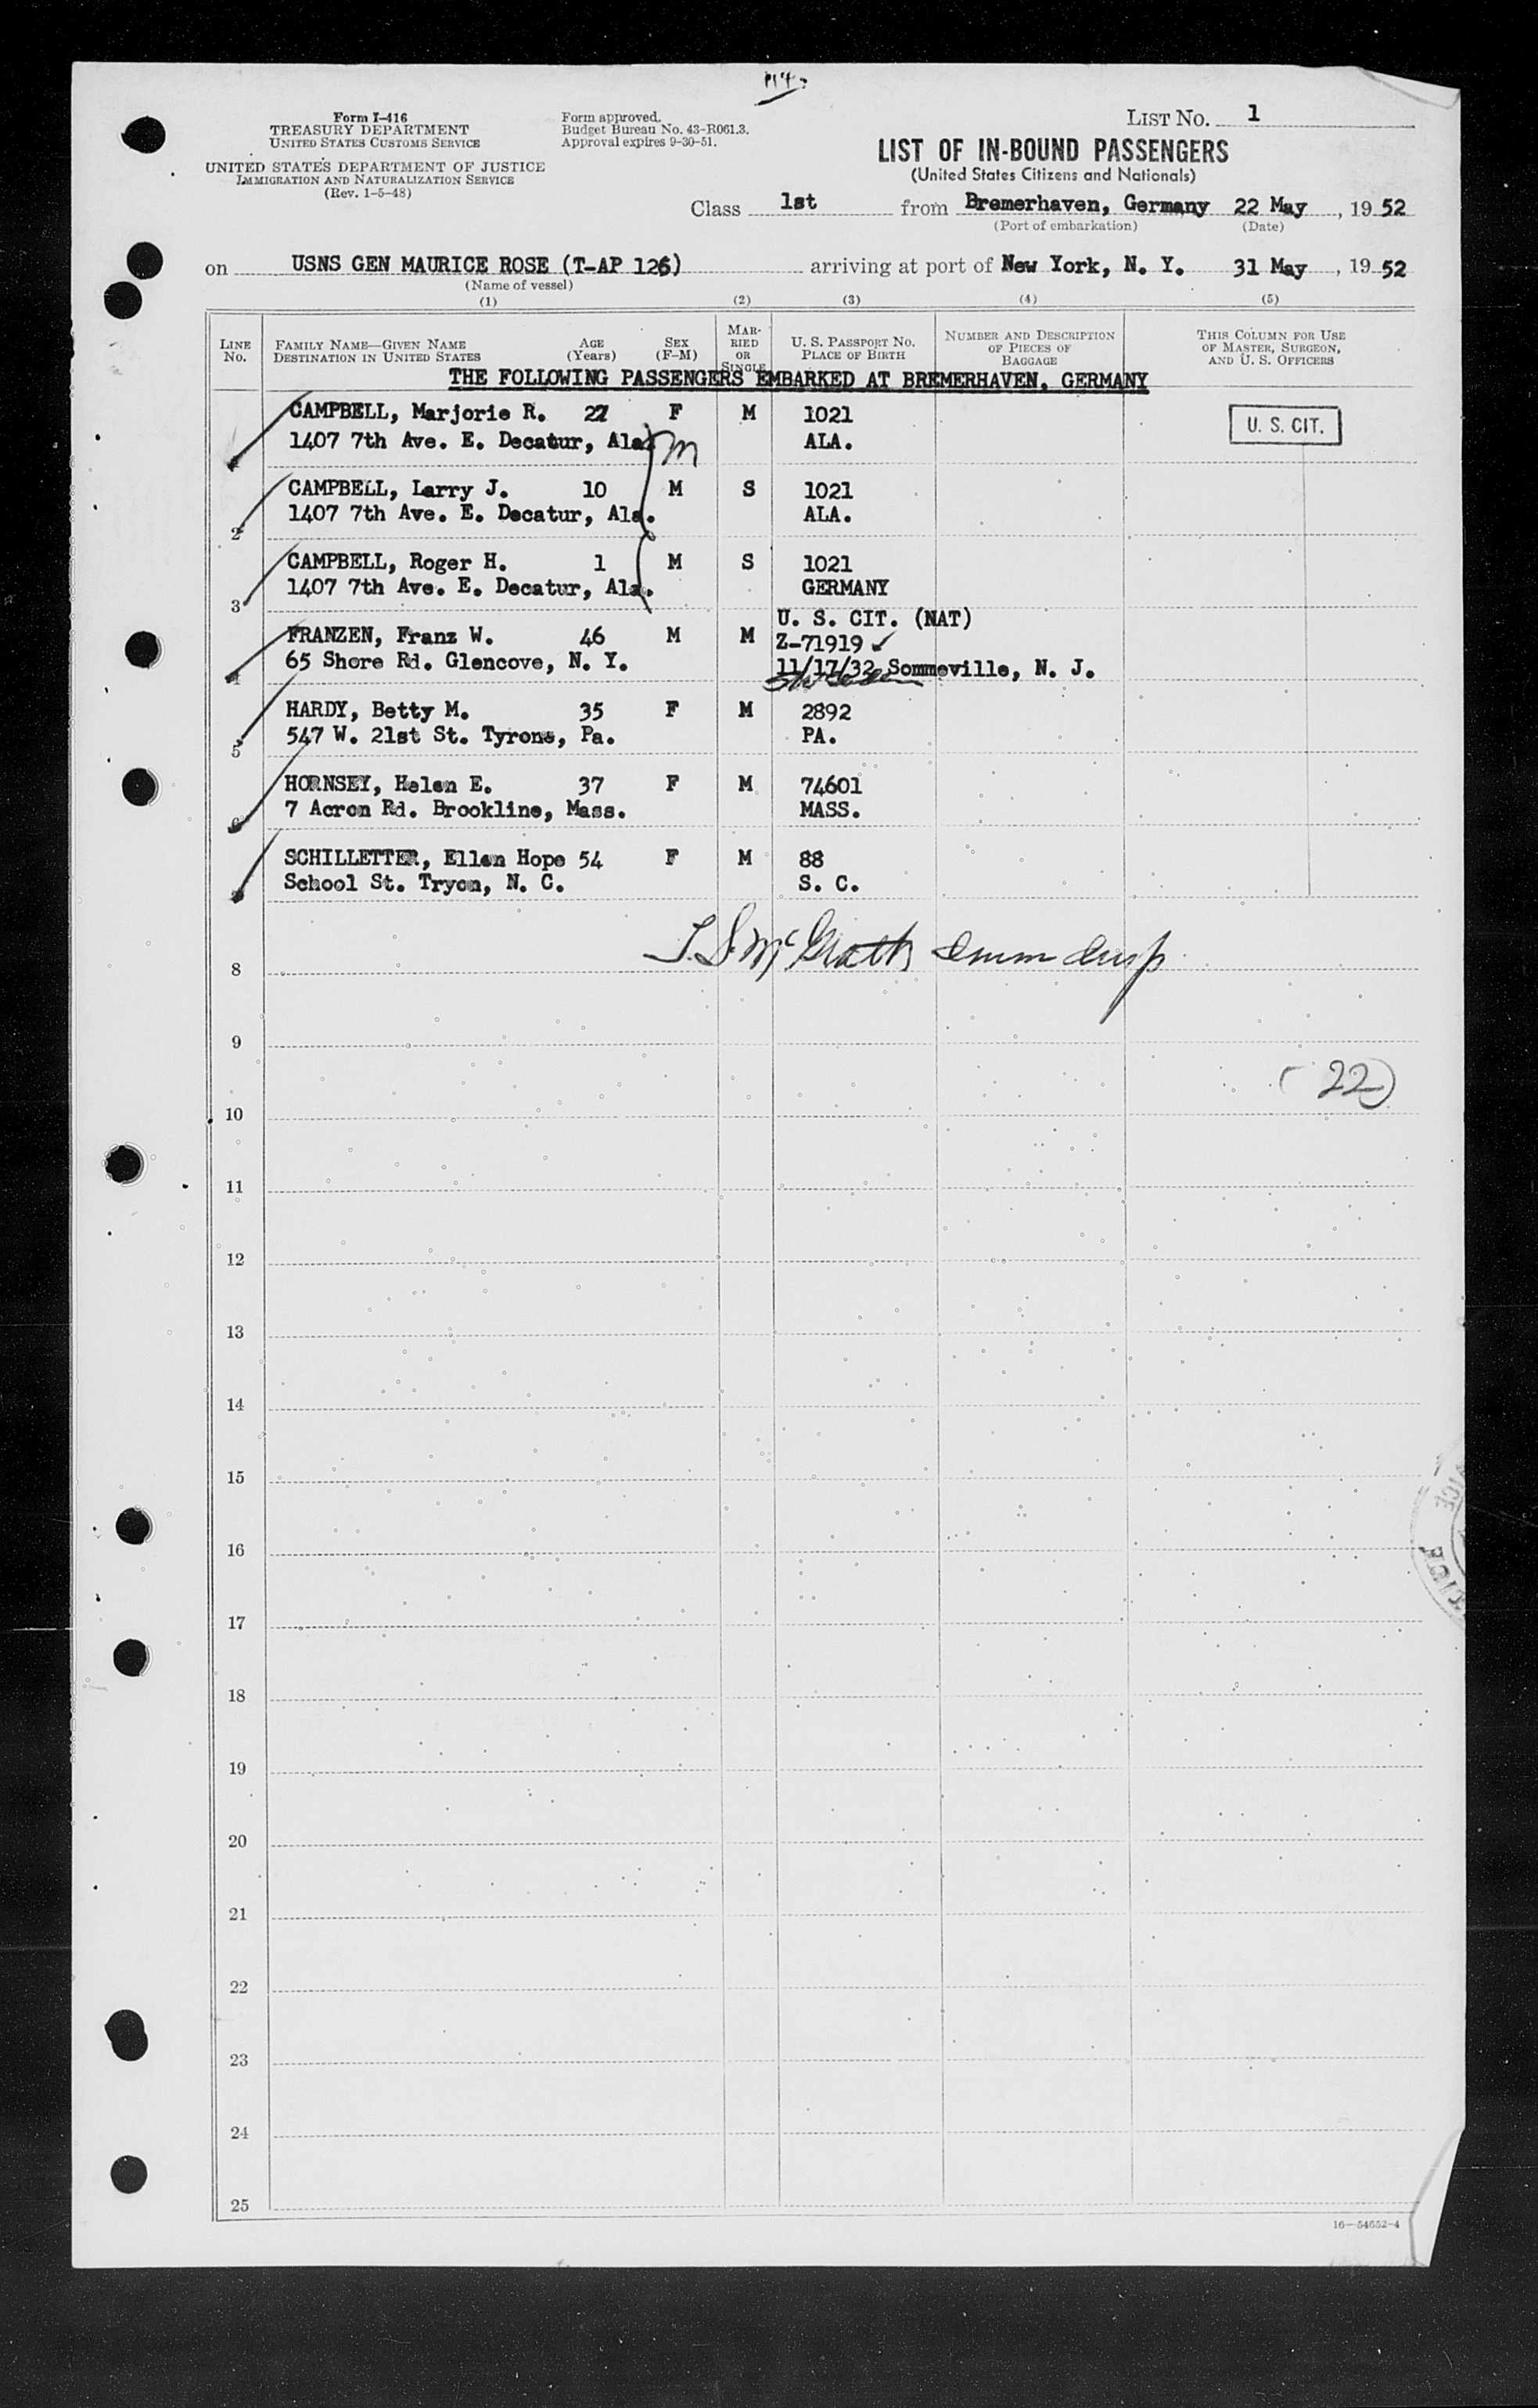 114
Form I-416
TREASURY DEPARTMENT
UNITED STATES CUSTOMS SERVICE
UNITED STATES DEPARTMENT OF JUSTICE
IMMIGRATION AND NATURALIZATION SERVICE
(Rev. 1-5-48)
Form approved.
Budget Bureau No. 43-R061.3.
Approval expires 9-30-51.
LIST NO. 1
LIST OF IN-BOUND PASSENGERS
(United States Citizens and Nationals)
Class 1st from Bremerhaven, Germany 22 May, 1952
(Port of embarkation) (Date)
on USNS GEN MAURICE ROSE (T-AP 126) arriving at port of New York, N. Y. 31 May, 1952
(Name of vessel)
(1) (2) (3) (4) (5)
LINE NO.
FAMILY NAME—GIVEN NAME
DESTINATION IN UNITED STATES
AGE (Years)
SEX (F-M)
MARRIED OR SINGLE
U. S. PASSPORT NO.
PLACE OF BIRTH
NUMBER AND DESCRIPTION OF PIECES OF BAGGAGE
THIS COLUMN FOR USE OF MASTER, SURGEON, AND U. S. OFFICERS
THE FOLLOWING PASSENGERS EMBARKED AT BREMERHAVEN, GERMANY
CAMPBELL, Marjorie R. 27 F M 1021 U. S. CIT.
1407 7th Ave. E. Decatur, Ala. m ALA.
CAMPBELL, Larry J. 10 M S 1021
2 1407 7th Ave. E. Decatur, Ala. ALA.
CAMPBELL, Roger H. 1 M S 1021
3 1407 7th Ave. E. Decatur, Ala. GERMANY
U. S. CIT. (NAT)
FRANZEN, Franz W. 46 M M Z-71919 ✓
4 65 Shore Rd. Glencove, N. Y. 11/17/32 Sommeville, N. J.
HARDY, Betty M. 35 F M 2892
5 547 W. 21st St. Tyrone, Pa. PA.
HORNSEY, Helen E. 37 F M 74601
6 7 Acron Rd. Brookline, Mass. MASS.
SCHILLETTER, Ellen Hope 54 F M 88
School St. Tryon, N. C. S. C.
McGrath Imm Insp
8
9
(22)
10
11
12
13
14
15
16
17
18
19
20
21
22
23
24
25
16—54652-4